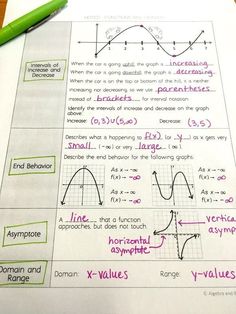 Intervals of
Increase and
Decrease
When the car is going uphill, the graph is increasing.
When the car is going downhill, the graph is decreasing.
When the car is on the top or bottom of the hill, is is neither
increasing nor decreasing, so we use parentheses
instead of brackets for interval notation.
Identify the intervals of increase and decrease on the graph
above:
Increase: (0,3)∪(5,∞) Decrease: (3,5)
End Behavior
Describes what is happening to f(x) (or y) as x gets very
small (-∞) or very large (∞)
Describe the end behavior for the following graphs.
As x→-∞
f(x)→-∞
As x→∞
f(x)→-∞
As x→-∞
As x→∞
Asymptote
A line that a function
approaches, but does not touch.
horizontal
asymptote
vertical
asymp
Domain and
Range
Domain: x-values Range: y-values
© Algebra and